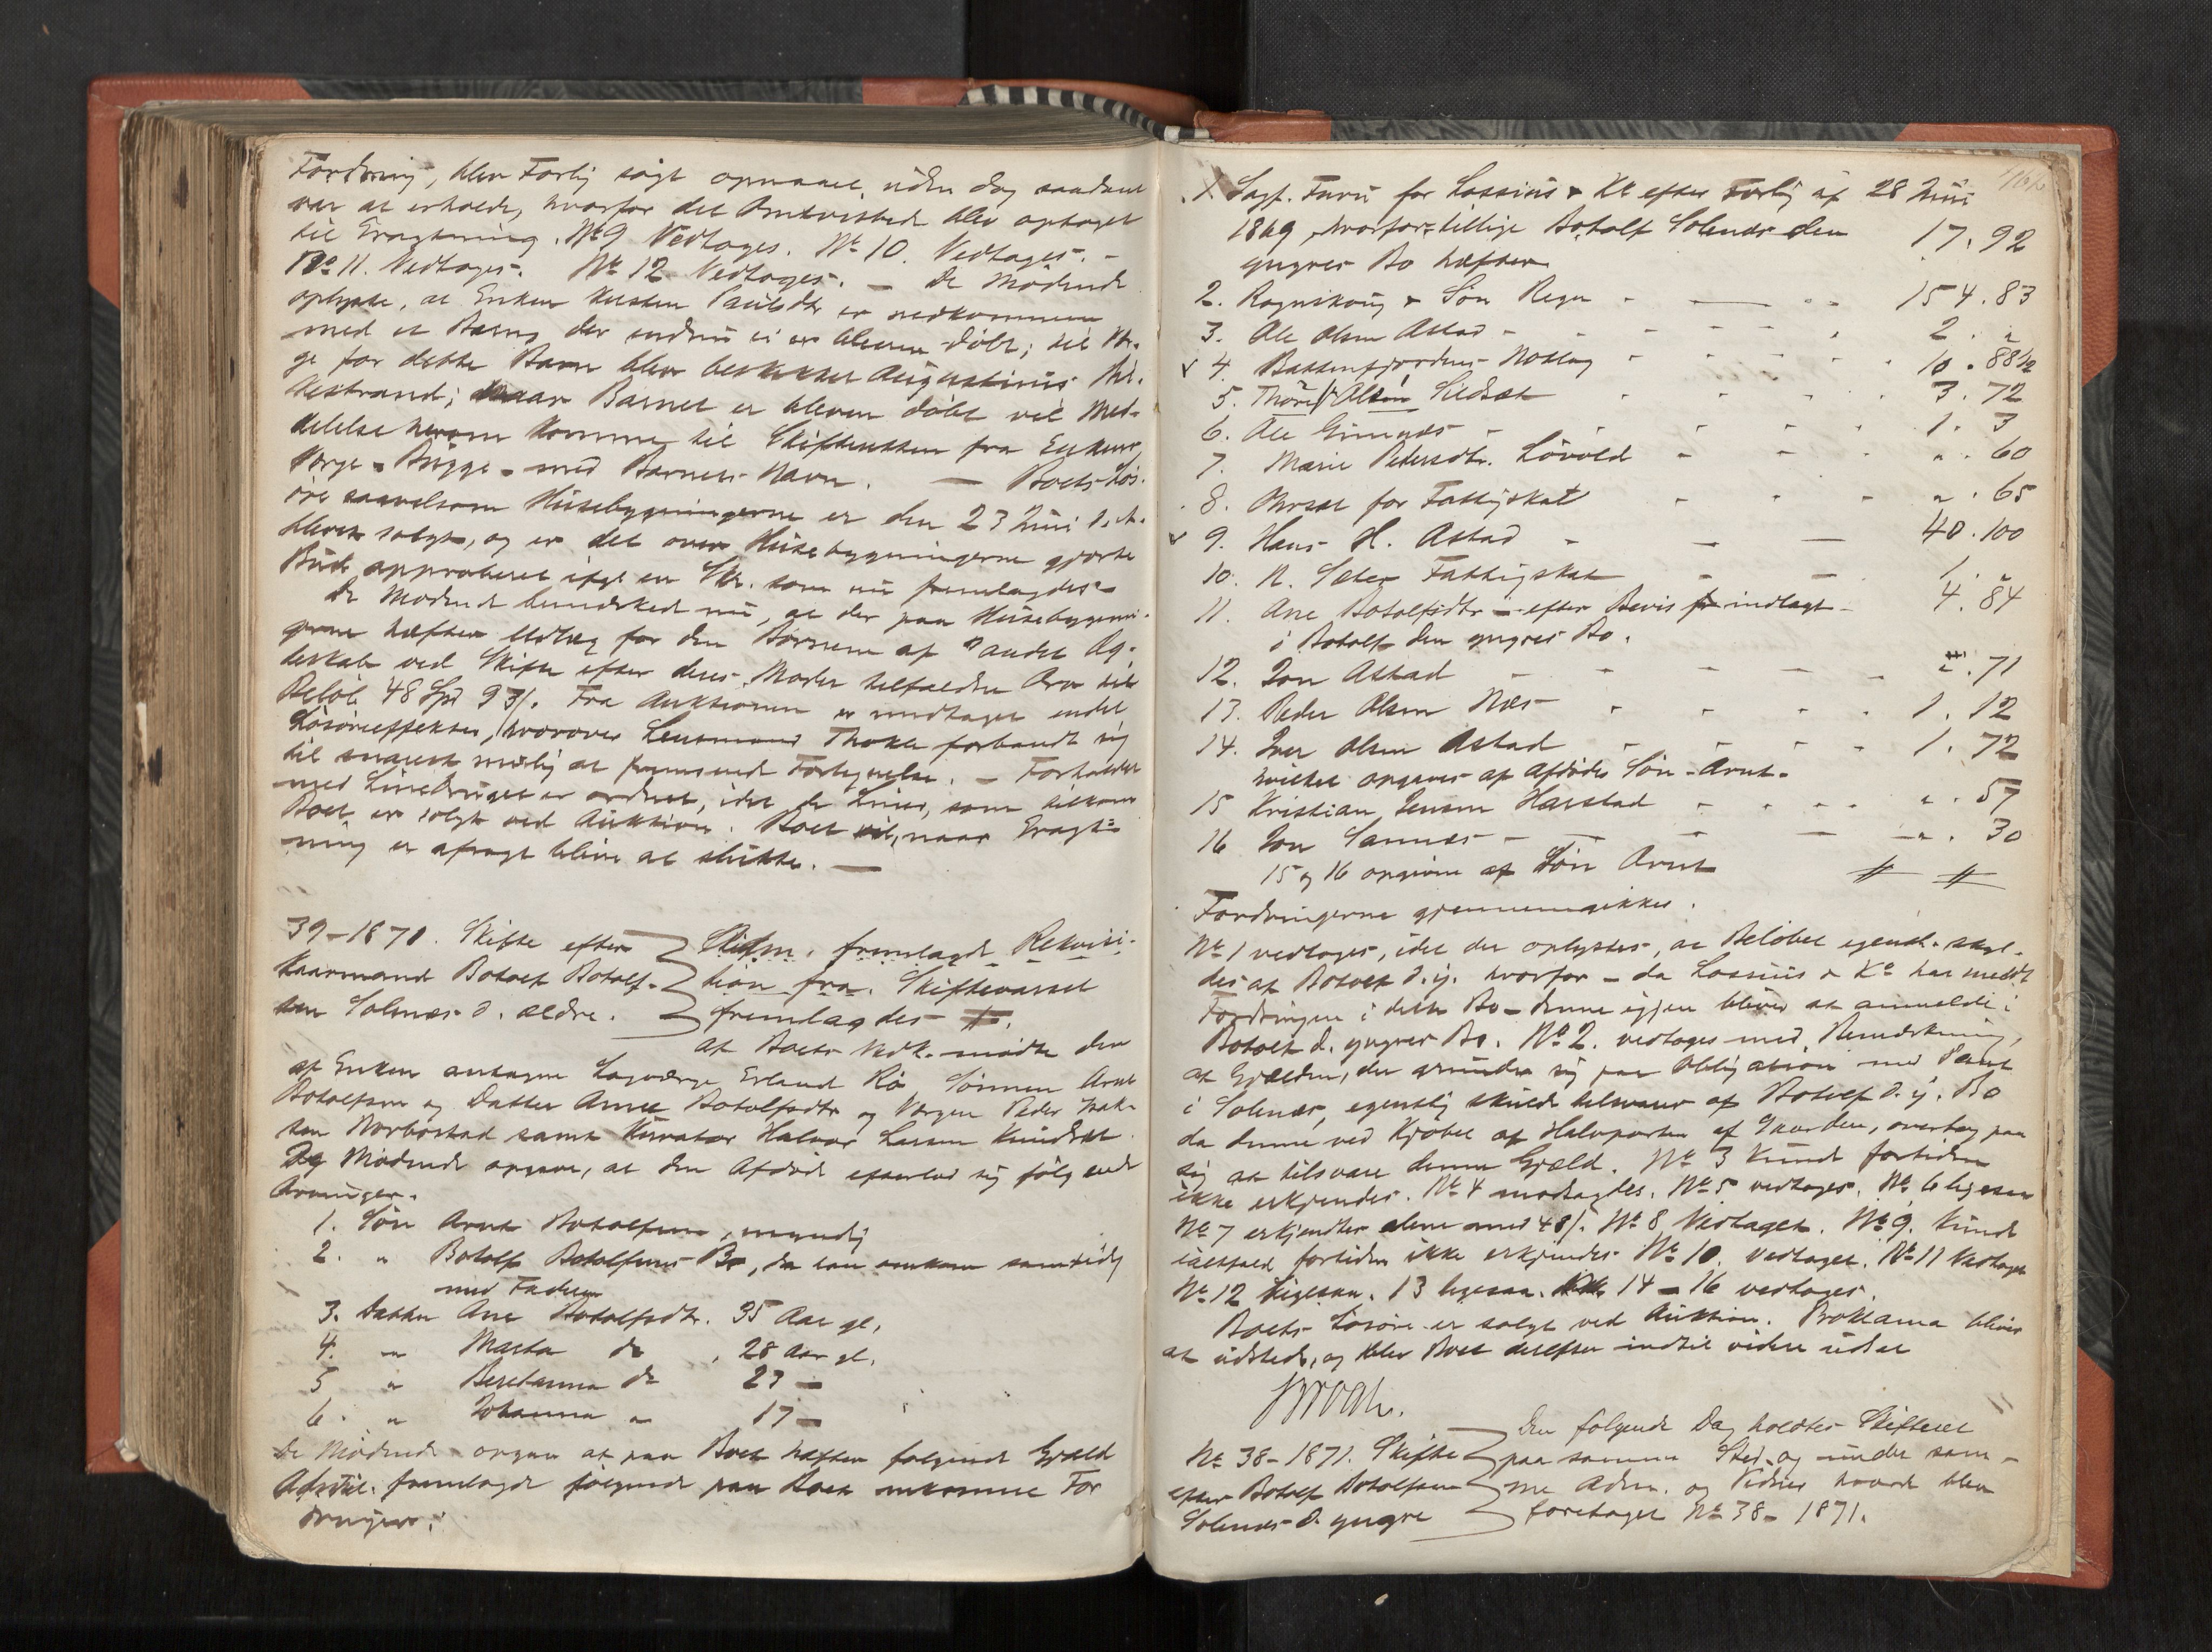 Fordring, blev Forlig søgt opnaaet, uden dog saadant
var at erholde, hvorfor det Omtvistede blev optaget
til Eragtning. No 9 Vedtages. No 10. Vedtages. –
No 11. Vedtages. No 12 Vedtages. – De Mødende
oplyste, at Enken Paulsdtr er nedkommen
med et Barn, der endnu ei er bleven døbt; til Vær-
ge for dette Barn blev beskikket Augustinus
naar Barnet er bleven døbt vil Med-
delelse herom komme til Skifteretten fra Enkens
Værge – Brügge – med Barnets Navn. – Boets Løs-
øre saavelsom Husebygningerne er den 23 Juni d. A.
blevet solgt, og er det over Husebygningerne gjorte
Bud approberet ifgl en Skr. som nu fremlagdes
De Mødende bemærked nu, at der paa Husebygnin-
gerne hæfter Udlæg for den Børnene af andet Æg-
teskab ved Skifte efter deres Moder tilfaldne Arv til
Beløb 48 Spd 93/. Fra Auktionen er undtaget endel
Løsøreeffekter, hvorover Lensmand forbandt sig
til snarest mulig at fremsende Fortegnelse. – Forholdet
med Linebruget er ordnet, idet de Liner, som tilkom
Boet er solgt ved Auktion. Boet vil, naar Eragt-
ning er afsagt blive at slutte. –
39–1870. Skifte efter
Kaarmand Botolf Botolf-
sen Solnæs d. ældre.
fremlagde Rekvisi-
tion fra. Skiftevarsel
fremlagdes #.
af Boets Vedk. mødte den
af Enken antagne Lagværge Erland Rø, Sønnen Arnt
Botolfsen og Datter Anne Botolfsdtr og Værgen Peder
samt Kurator Halvor Larsen
De Mødende opgave, at den Afdøde efterlod sig følgende
Arvinger.
1. Søn Arnt Botolfsen, myndig
2. " Botolf Botolfsens Bo, da han omkom samtidig
med Faderen
3. Datter Ane Botolfsdtr. 35 Aar gl.
4. " Marta do , 28 Aar gl.
5 " do 23 –
6. " Johanna " 17 –
De Mødende opgav at paa Boet hæfter følgende Gjæld
fremlagde følgende paa Boet indkomne For
dringer:
1. Sagf. for Lossius & Ko efter Forlig af 28 Juni
1869, hvorfor tillige Botolf Solnæs den 17. 92
yngres Bo hæfter
2. & Søn Regn - 154. 83
3. Ole Olsen Astad - 2. "
4. Battenfjordens - 10. 88½
5. 3. 72
6. Ole - 1. 3
7. Marie Pedersdtr. Løvold - " . 60
8. for Fattigskat - " . 65
9. Hans H. Astad - 40. 100
10. N. Sæter Fattigskat - 1. "
11. Ane Botolfsdtr – efter Bevis indlagt – 4. 84
i Botolf den yngres Bo.
12. Jon Astad - " . 71
13. Peder Olsen Næs - 1. 12
14. Iver Olsen Astad - 1. 72
hvilket opgaves af Afdødes Søn – Arnt.
15 Kristian Jensen Harstad - " . 57
16 Jon Sannæs - " . 30
15 og 16 opgivne af Søn Arnt # #
Fordringerne gjennemgikkes.
No 1 vedtages, idet det oplystes, at Beløbet egentl. skyl-
des af Botolf d. y. hvorfor – da Lossius & Ko har meldt
Fordringen i dette Bo – denne igjen bliver at anmelde i
Botolf d. yngres Bo. No 2. vedtages med Bemærkning,
at Gjælden, der grunder sig paa Obligation med Pant
i Solnæs, egentlig skulde tilsvares af Botolf d. y. Bo
da denne ved Kjøbet af Halvparten af Gaarden, overtog paa
sig at tilsvare denne Gjæld. No 3 kunde fortiden
ikke erkjendes. No 4 modtagdes. No 5 vedtages. No 6 ligesaa
No 7 erkjendtes alene med 48/. No 8 Vedtaget. No 9. kunde
ialtfald fortiden ikke erkjendes No 10. vedtaget. No 11 Vedtaget
No 12 ligesaa. 13 ligesaa. 14 – 16 vedtages.
Boets Løsøre er solgt ved Auktion. Proklama bliver
at udstede, og blev Boet derefter indtil videre udsat
No 38–1871. Skifte
efter Botolf Botolfsen
Solnæs d. yngre
Den følgende Dag holdtes Skifteret
paa samme Sted og under sam-
me Adm. og Vidner hvorda blev
foretaget No 38 – 1871.